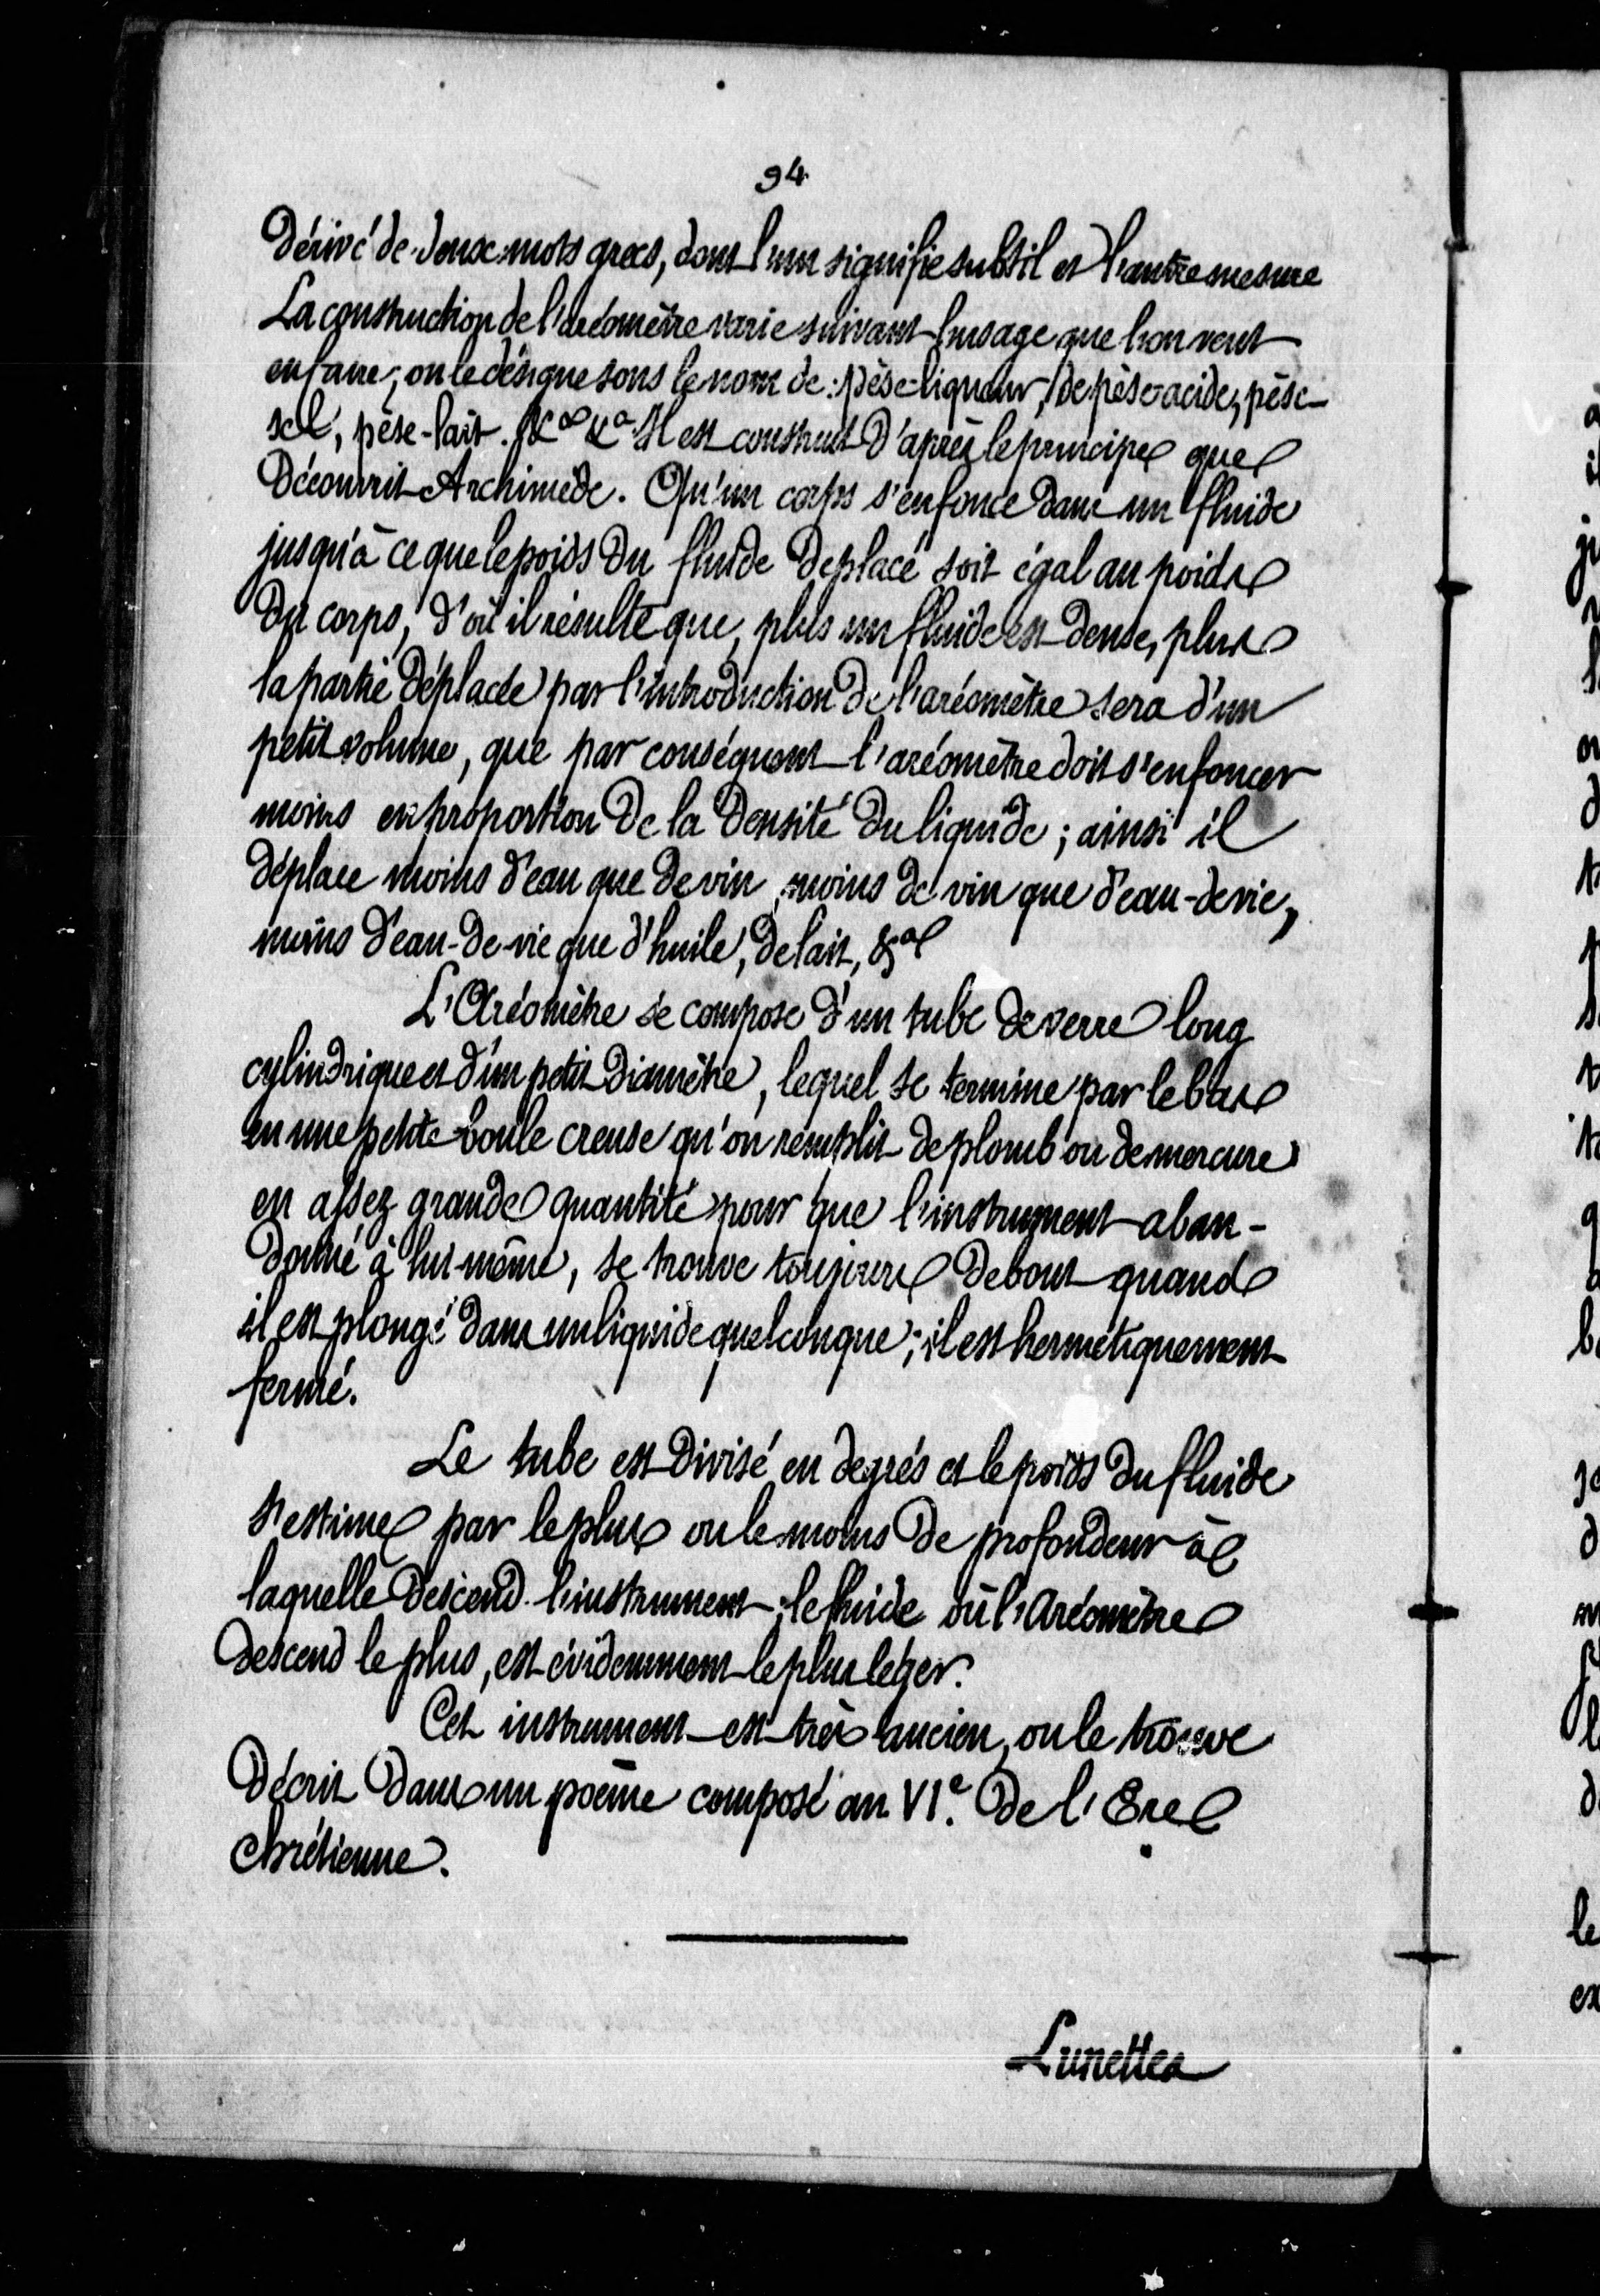 94
Dérivé de deux mots grecs, dont l'un signifie subtil et l'autre mesure
La construction de l'aréomètre varie suivant l'usage que l'on veut
en faire; on le désigne sous le nom de: pèse-liqueur, de pèse-acide, pèse-
sel, pèse-lait. &ca &ca Il est construit d'après le principe que
Découvrit Archimède. Qu'un corps s'enfonce dans un fluide
jusqu'à ce que le poids du fluide déplacé soit égal au poids
du corps, d'où il résulte que, plus un fluide est dense, plus
la partie déplacée par l'introduction de l'aréomètre sera d'un
petit volume, que par conséquent l'aréomètre doit s'enfoncer
moins en proportion de la densité du liquide; ainsi il
déplace moins d'eau que de vin, moins de vin que d'eau-de-vie,
moins d'eau-de-vie que d'huile, de lait, &ca
L'Aréomètre se compose d'un tube de verre long
cylindrique et d'un petit diamètre, lequel se termine par le bas
en une petite boule creuse qu'on remplit de plomb ou de mercure
en assez grande quantité pour que l'instrument aban-
donné à lui même, se trouve toujours debout quand
il est plongé dans un liquide quelconque; il est hermétiquement
fermé.
Le tube est divisé en degrés et le poids du fluide
s'estime par le plus ou le moins de profondeur à
laquelle descend l'instrument; le fluide où l'Aréomètre
descend le plus, est évidemment le plus léger.
Cet instrument est très ancien, on le trouve
décrit dans un poème composé au VIe. de l'Ere
chrétienne.
Lunettes